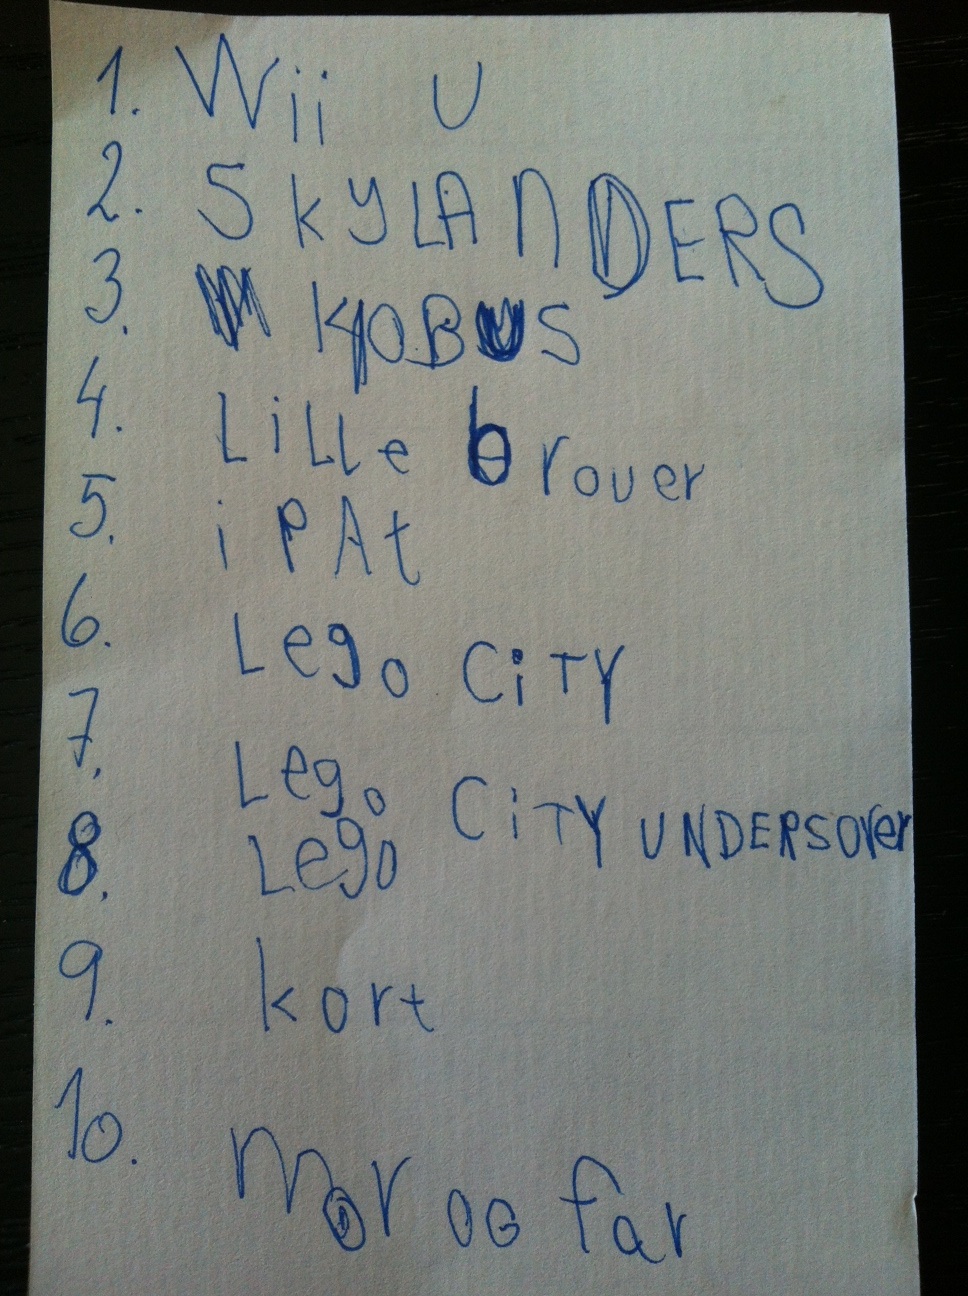 1. Wii U
2. SKYLAnDERS
3.
4. LiLLe brouer
5. iPAt
6. Lego CiTY
7. Lego CiTY UNDERSOVer
8. Lego
9. kort
10. mor oG far